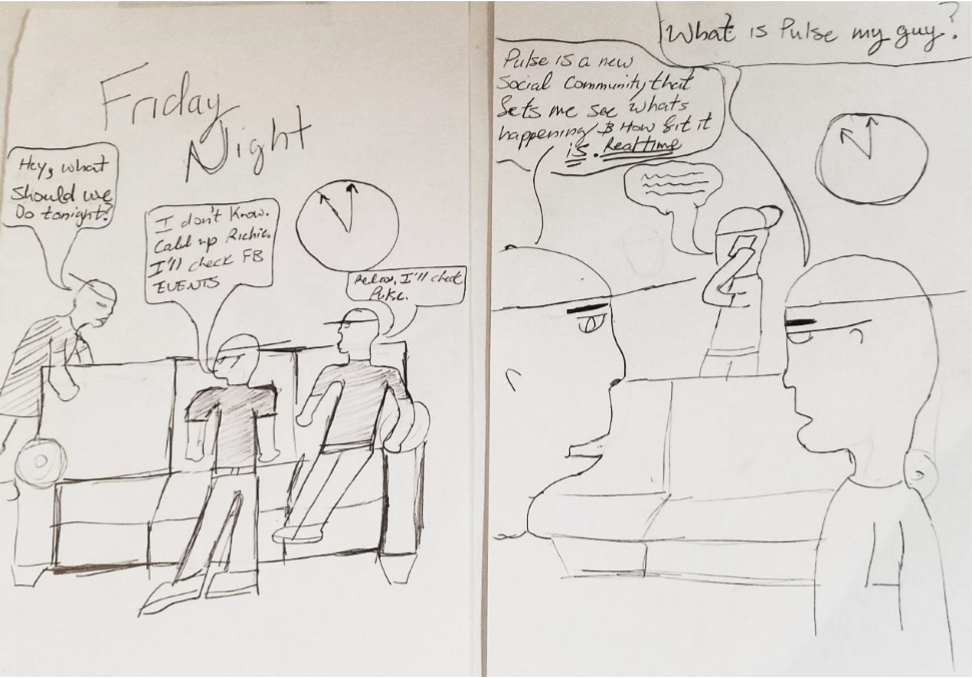 Friday
Night
Hey, what
should we
Do tonight?
I don't know.
Call up Richie.
I'll check FB
EVENTS
Relax, I'll check
Pulse.
What is Pulse my guy?
Pulse is a new
Social Community that
lets me see whats
happening & How lit it
is. Realtime